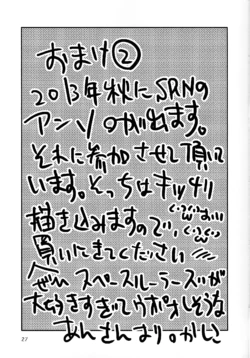 おまけ②
2013年秋にSRNの
アンソロが出ます。
それに参加させて頂いて
います。そっちはキッチリ
描き込みますので、
買いにきてください
スペースルーラーズが
大好きすぎってウポオしそうな
27